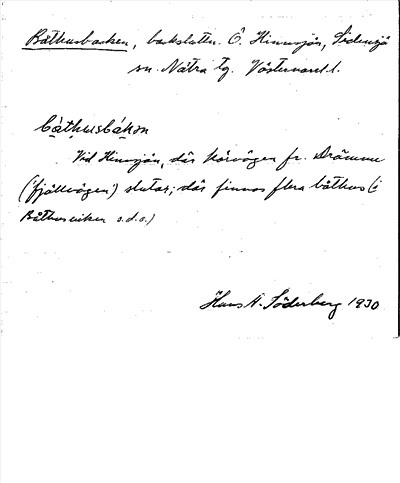 Båthusbacken, backsluttn. Ö. Hinnsjön, Sidensjö
sn. Nätra tg. Västernorrl. l.
bǻthusbákən
Vid Hinnsjön, där körvägen fr. Drömme
("fjällvägen") slutar; där finnas flera båthus (i
Båthusviken s.d.o.)
Hans A. Söderberg 1930